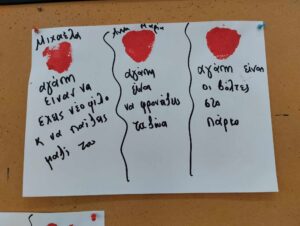 Μιχαέλα
αγάπη
είναν να
έχεις νέο φίλο
κ να παίζεις
μαζί του
Άννα Μαρία
αγάπη
είναι
να φροντίζεις
τα ζώα
αγάπη είναι
οι βόλτες
στο
πάρκο